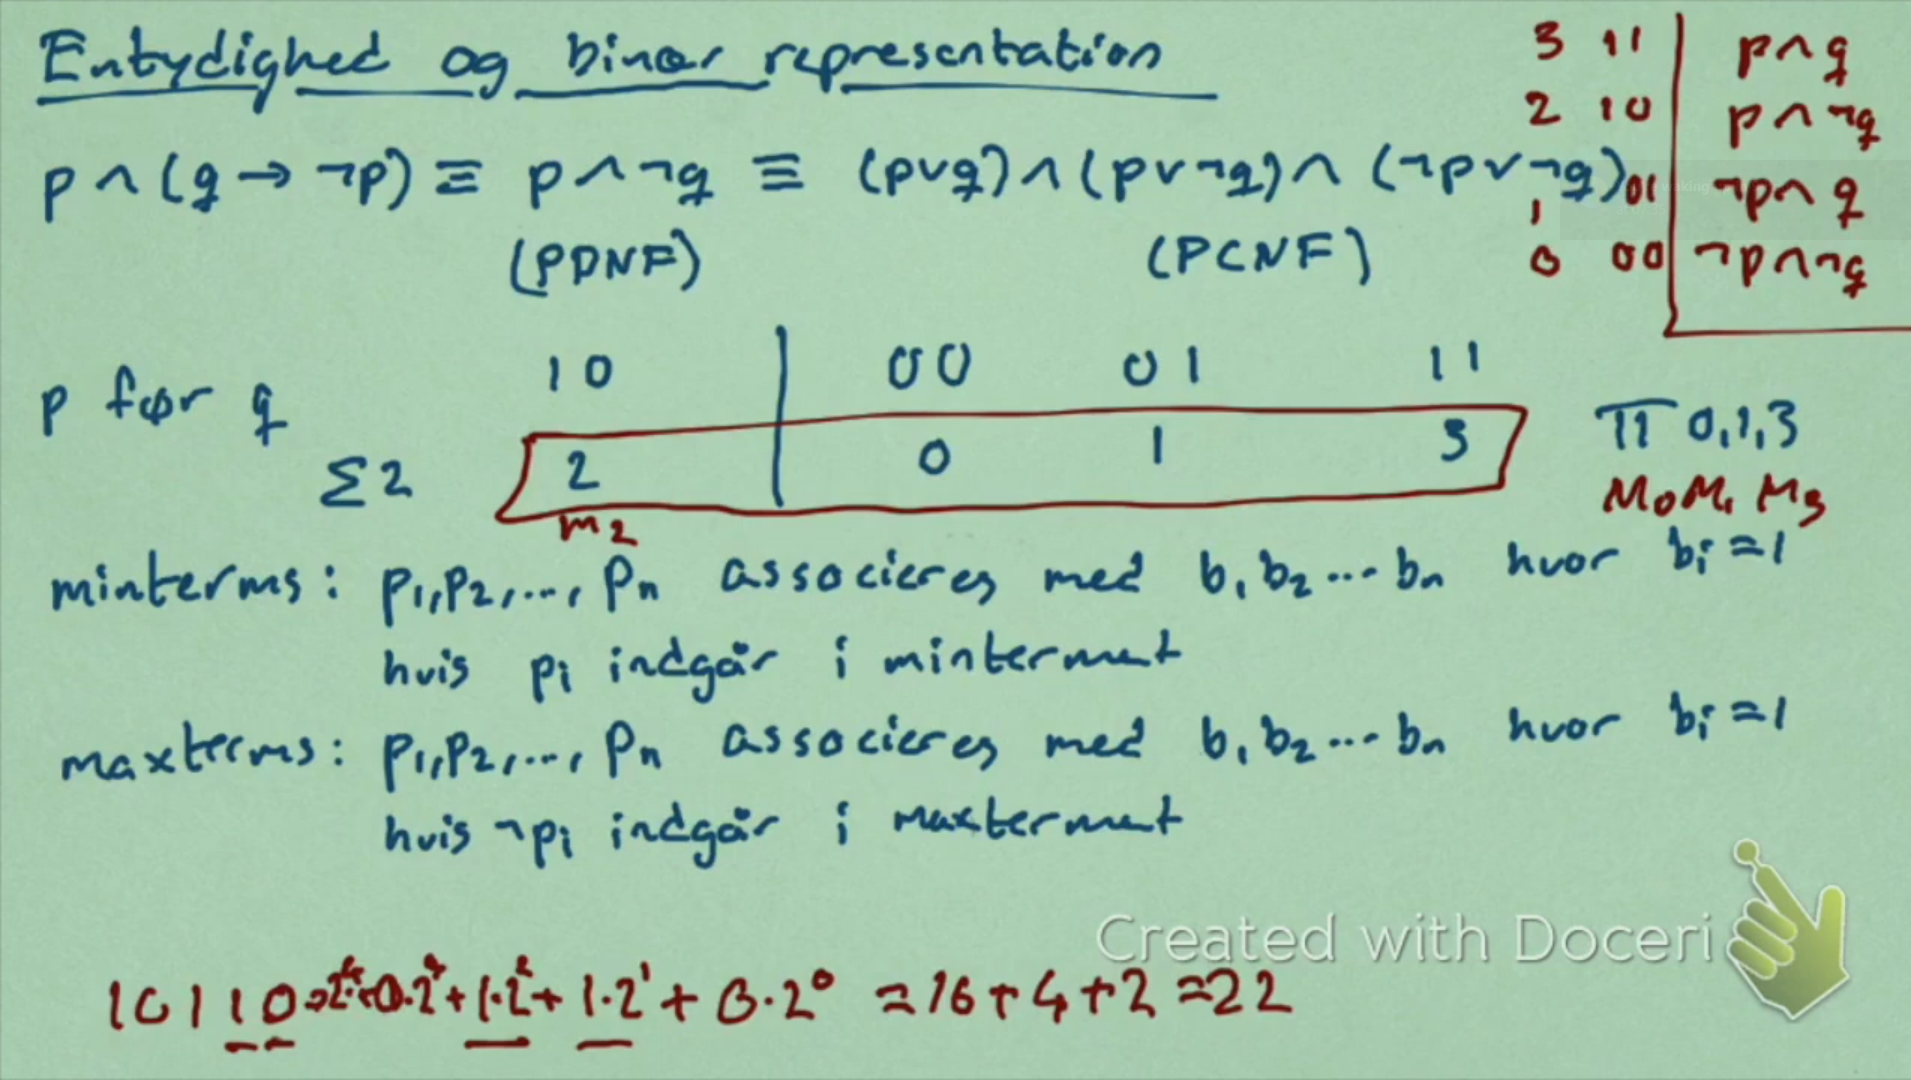 Entydighed og binær representation
3 11 p∧q
2 10 p∧¬q
1 01 ¬p∧q
0 00 ¬p∧¬q
p∧(q→¬p) ≡ p∧¬q ≡ (p∨q)∧(p∨¬q)∧(¬p∨¬q)
(PDNF) (PCNF)
p før q 10 00 01 11
Σ2 2 0 1 3 π 0,1,3
m2 M0 M1 M3
minterms: p1,p2,..., pn associeres med b1b2...bn hvor bi=1
hvis pi indgår i mintermet
maxterms: p1,p2,..., pn associeres med b1b2...bn hvor bi=1
hvis ¬pi indgår i maxtermet
Created with Doceri
10110 = 2⁴+0·2³+1·2²+1·2¹+0·2⁰ =16+4+2=22